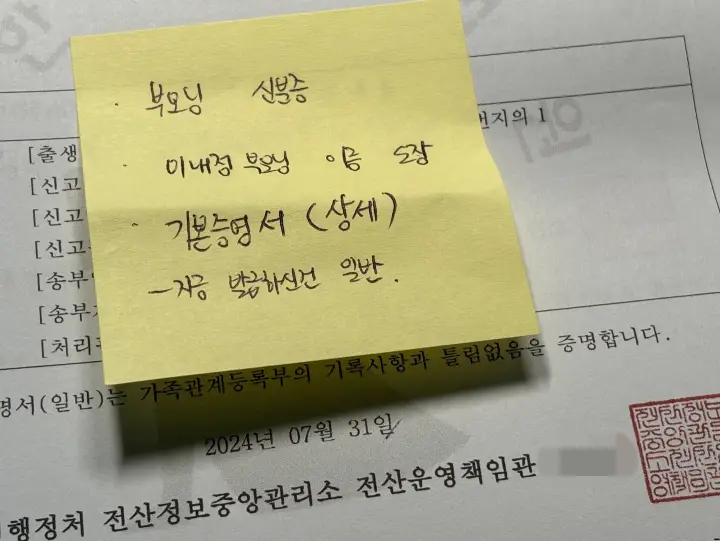 · 부모님 신분증
· 미내점 부모님 이름 도장
· 기본증명서 (상세)
- 지금 발급하신건 일반.
번지의 1
[출생
[신고
[신고
[신고
[송부
[송부
[처리
명서(일반)는 가족관계등록부의 기록사항과 틀림없음을 증명합니다.
2024년 07월 31일
행정처 전산정보중앙관리소 전산운영책임관